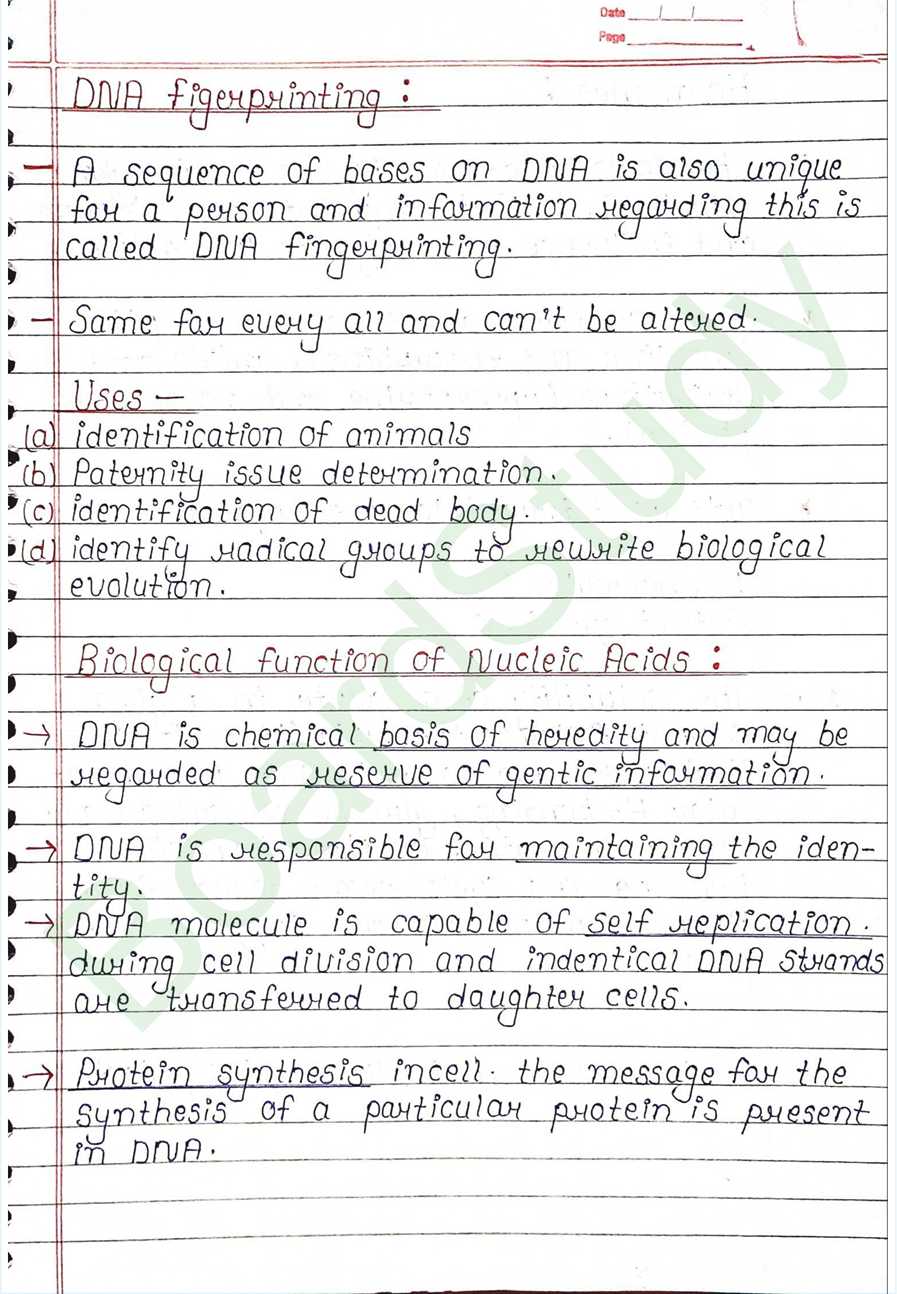 Date
Page
DNA figerprinting :
— A sequence of bases on DNA is also unique
for a person and information regarding this is
called DNA fingerprinting.
— Same for every all and can't be altered.
Uses —
(a) identification of animals
(b) Paternity issue determination.
(c) identification of dead body.
(d) identify radical groups to rewrite biological
evolution.
Biological function of Nucleic Acids :
→ DNA is chemical basis of heredity and may be
regarded as reserve of gentic information.
→ DNA is responsible for maintaining the iden-
tity.
→ DNA molecule is capable of self replication.
during cell division and indentical DNA strands
are transferred to daughter cells.
→ Protein synthesis incell. the message for the
synthesis of a particular protein is present
in DNA.
BoardStudy